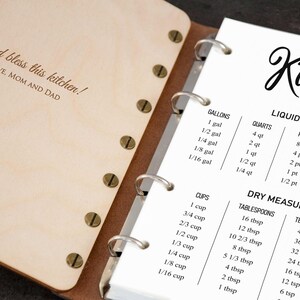 bless this kitchen!
Mom and Dad
LIQUID
GALLONS
1 gal
1/2 gal
1/4 gal
1/8 gal
1/16 gal
QUARTS
4 qt
2 qt
1 qt
1/2 qt
1/4 qt
DRY
CUPS
1 cup
3/4 cup
2/3 cup
1/2 cup
1/3 cup
1/4 cup
1/8 cup
1/16 cup
TABLESPOONS
16 tbsp
12 tbsp
10 2/3 tbsp
8 tbsp
5 1/3 tbsp
4 tbsp
2 tbsp
1 tbsp